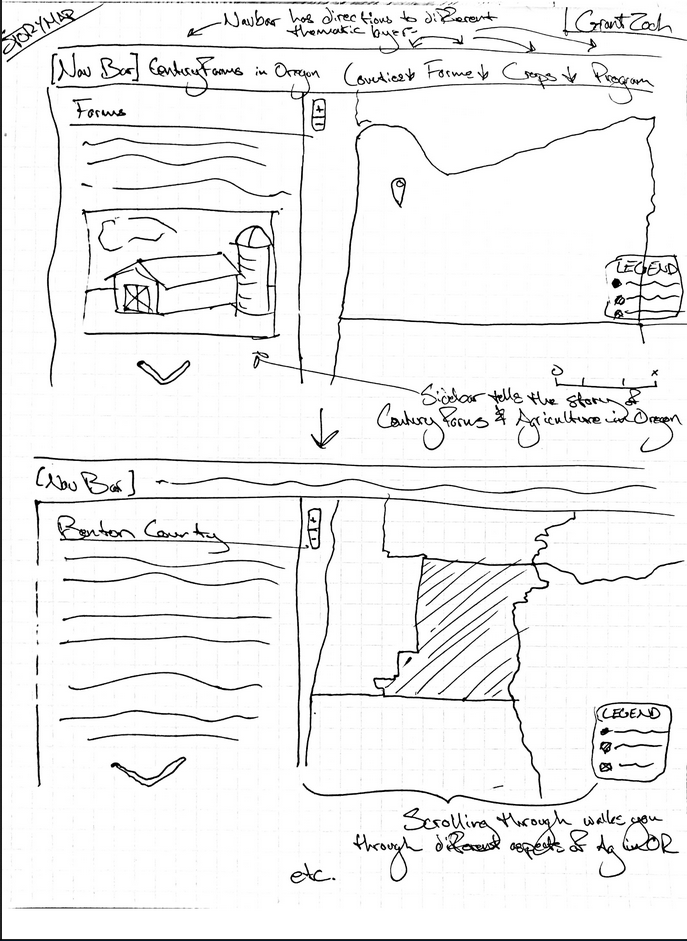 STORYMAP
Navbar has directions to different
thematic layers
Grant Zoch
[Nav Bar] Century Farms in Oregon Counties↓ Farms↓ Crops↓ Program
Farms
+
-
LEGEND
0 x
Sidebar tells the story of
Century Farms & Agriculture in Oregon
[Nav Bar]
Benton County
+
-
LEGEND
Scrolling through walks you
through different aspects of Ag in OR
etc.